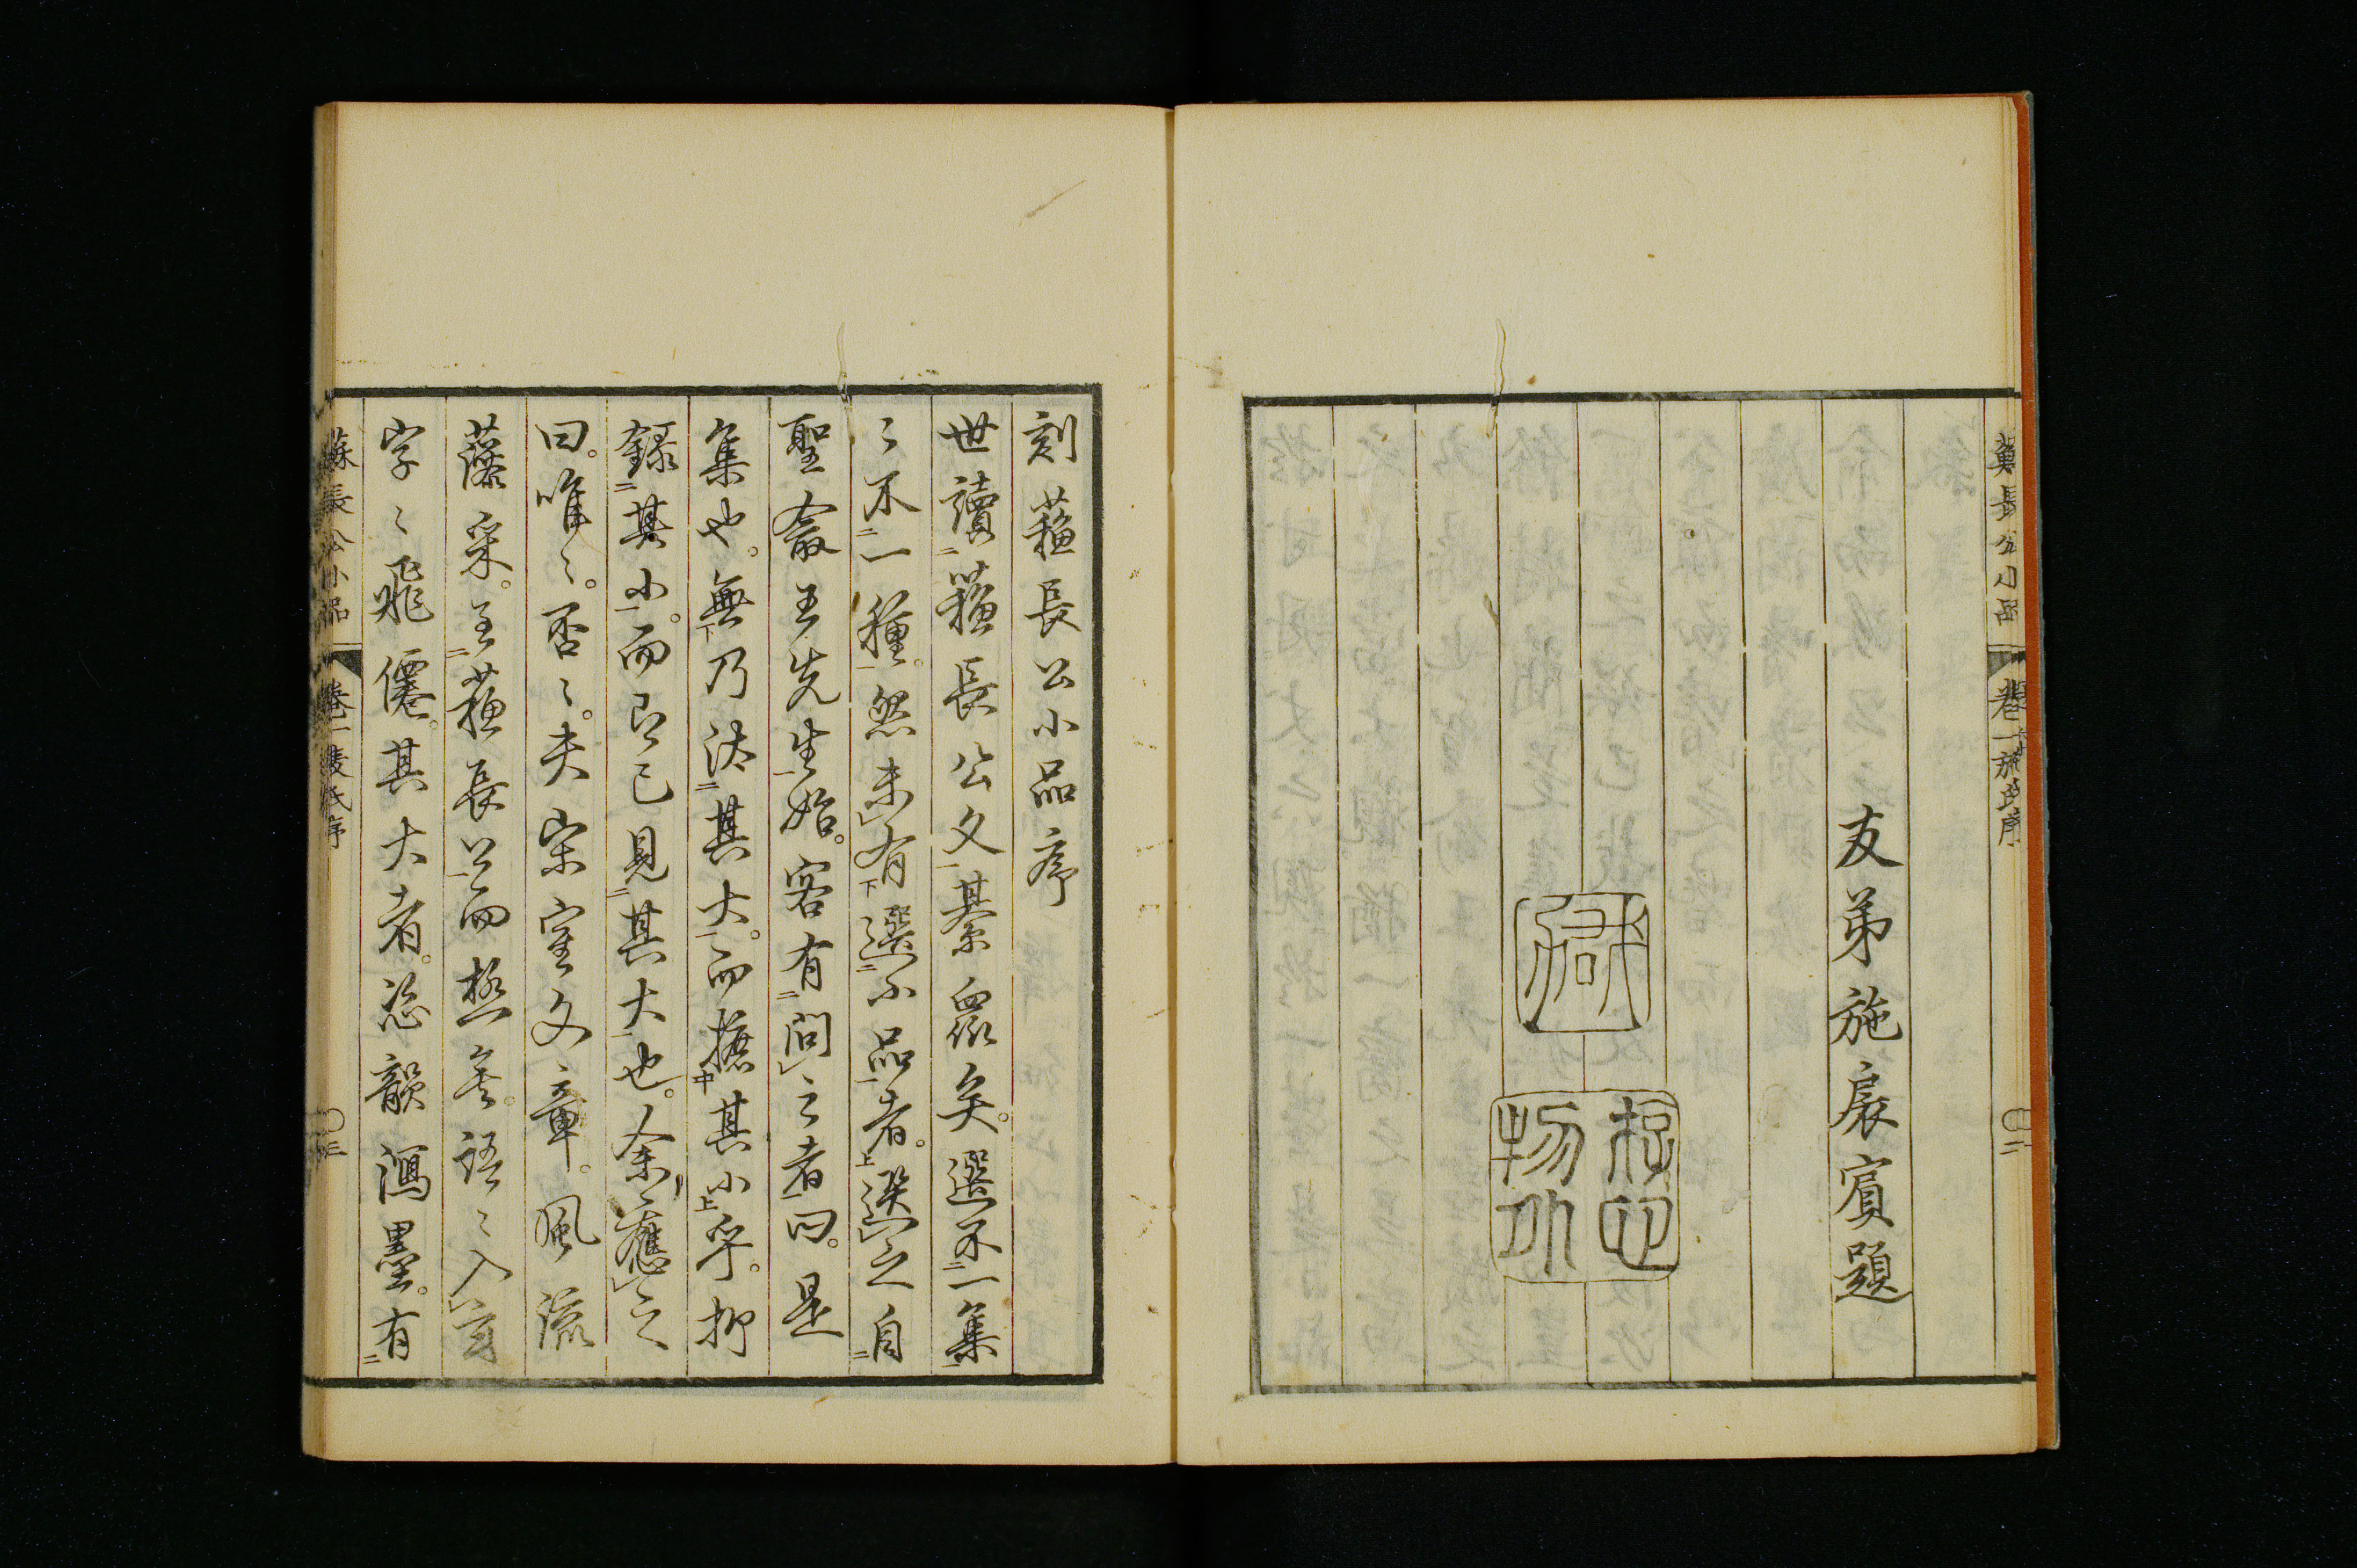 蘇長公小品 卷一 施氏序 〇二
友弟施扆賓題
刻蘇長公小品序
世讀蘇長公文綦眾矣。選不一集
〻不一種。然未有選小品者。選之自
聖俞王先生始。客有問之者曰。是
集也。無乃汰其大。而摭其小乎。抑
錄其小。而即已見其大也。余應之
曰。唯〻。否〻。夫宋室文章。風流
藻采。至蘇長公而極矣。語〻入玄
字〻飛僊。其大者。恣韻瀉墨。有
蘇長公小品 卷一 凌氏序 〇三